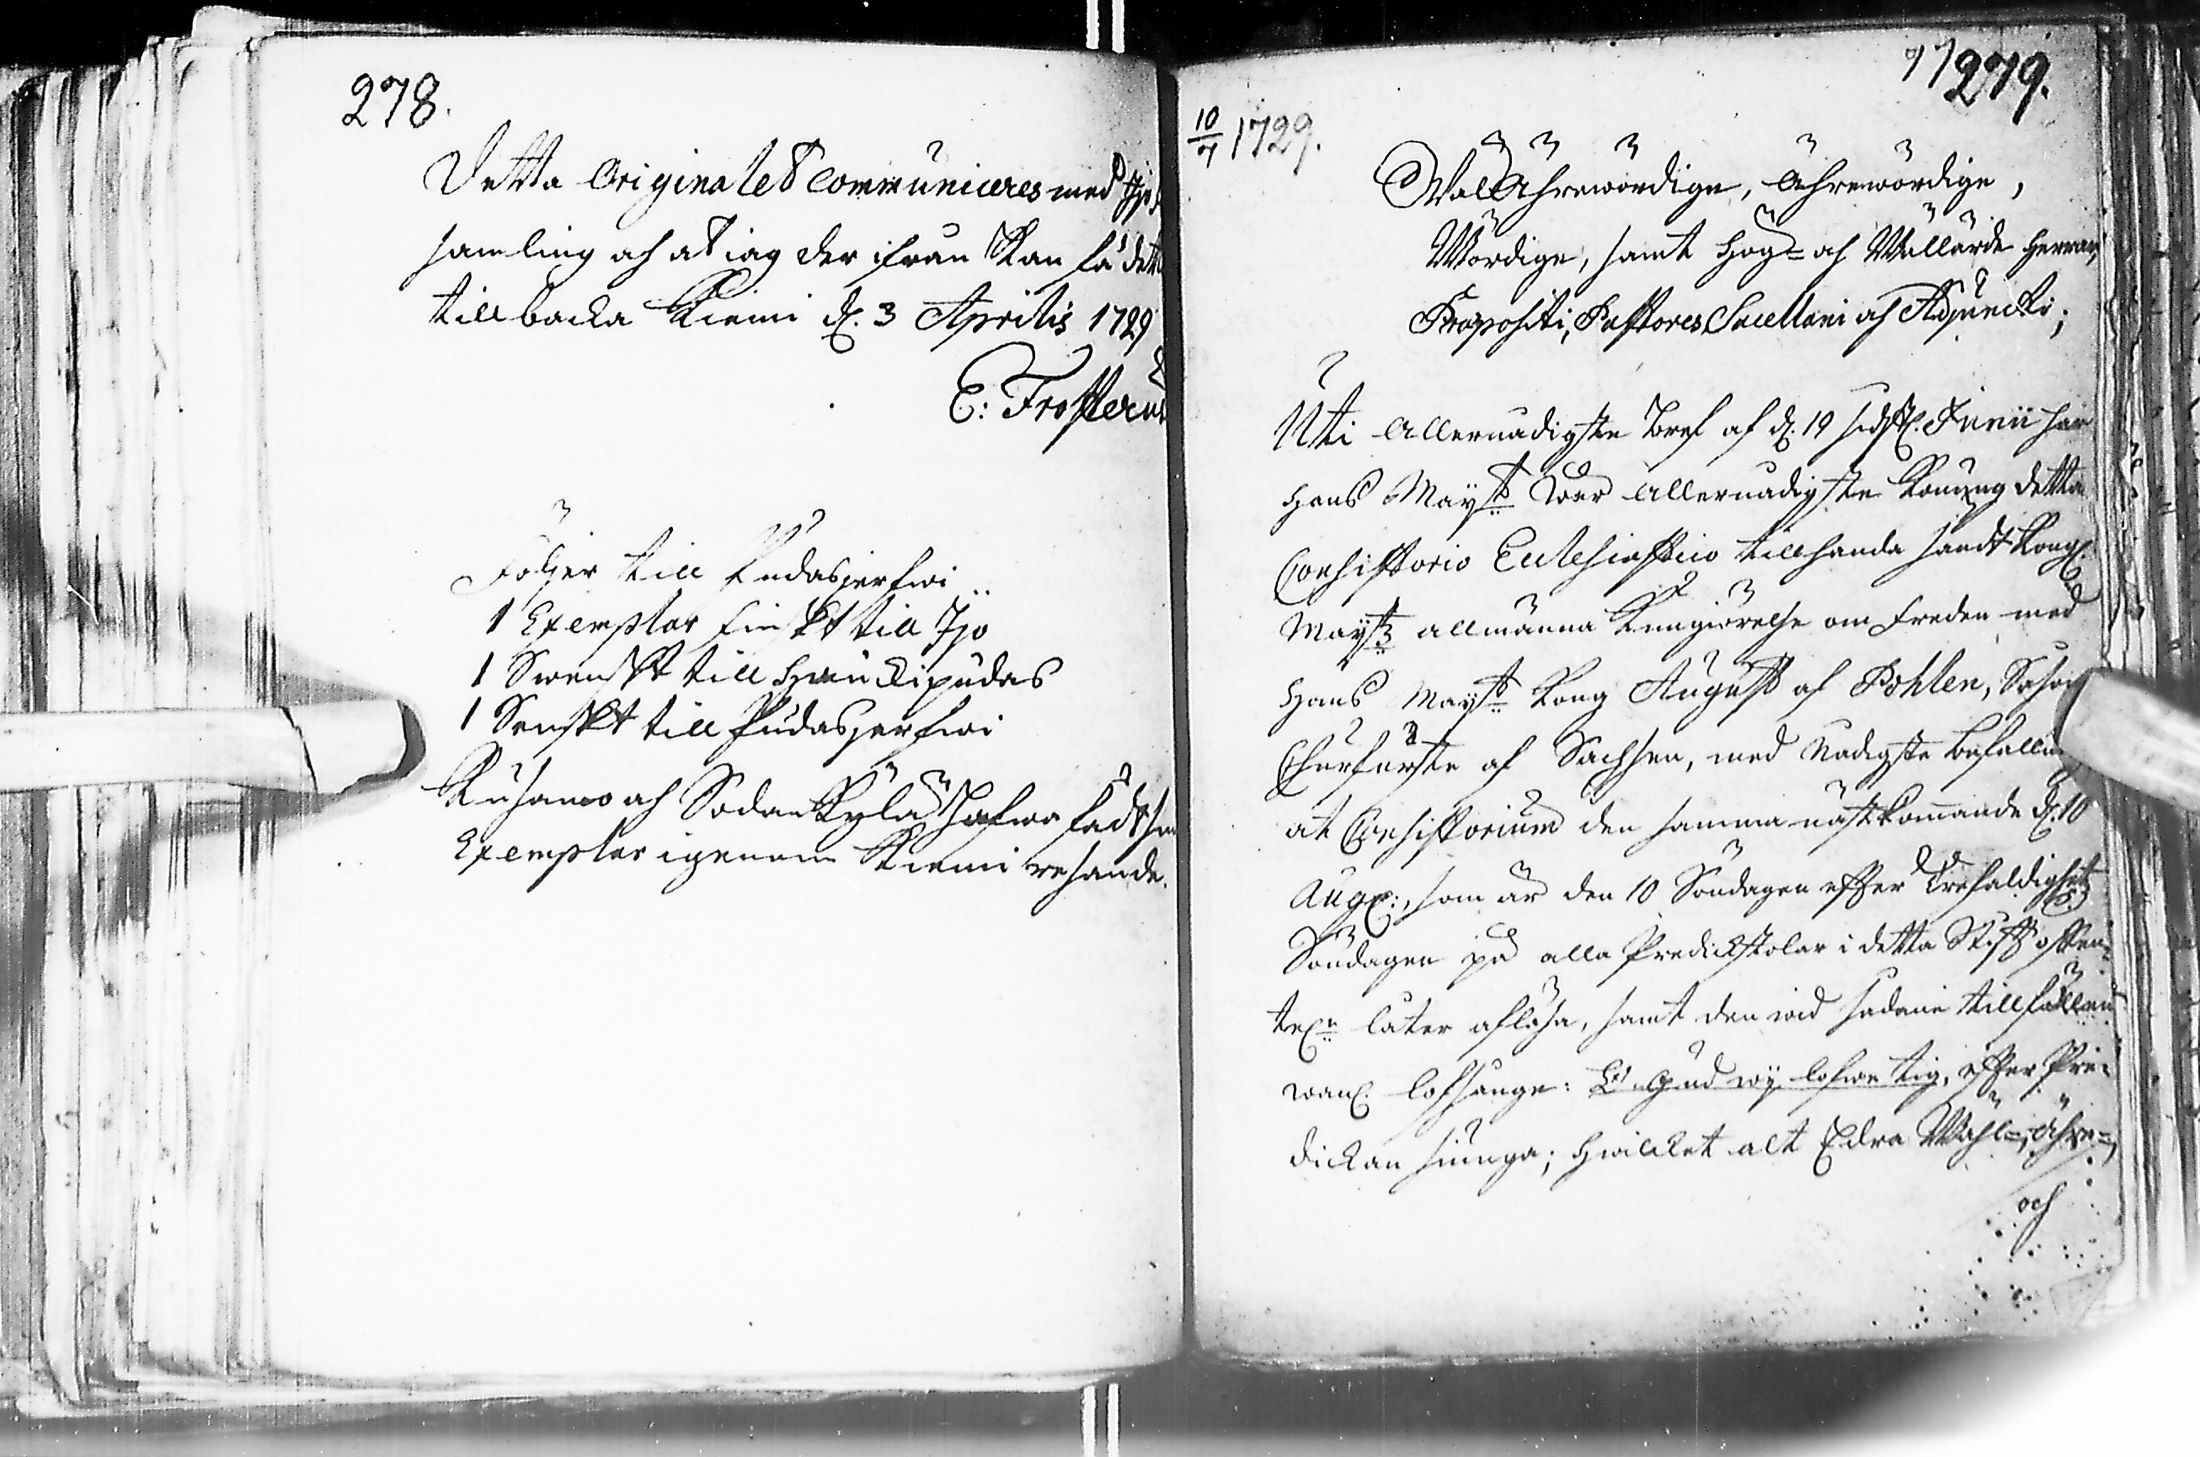 278.
Detta Originalet communiceres med Ijo
samling och at iag der ifrån kan få dett
tillbacka Kiemi d. 3 Aprilis 1729
E: Frosterus
Följer till Pudasjerfwi
1 Exemplar Finskt till Ijo
1 Swenskt till Haukipudas
1 Svenskt till Pudasjerfwi
Kusamo och Sodankylä hafwa fådt sin
Exemplar igenom Kiemi resande.
279.
10/7 1729.
WälÄhrewördige, Ährewördige,
Wördige, samt Hög= och Wällärde Herrar,
Præpositi, Pastores Sacellani och Adjuncti;
Uti Allernådigste Bref af d. 19 sidstl. Junii har
Hans Mayt Wår Allernådigste Konung detta
Consistorio Ecclesiastico tillhanda sändt Kongl.
Mayts allmänna Kungiörelse om Freden med
Hans Mayt Kong August af Pohlen, såsom
Churfurste af Sachsen, med Nådigste befallning
at Consistorium den samma nästkommande d. 10
Aug:, som är den 10 Söndagen effter Trefaldighets
Söndagen på alla Predickstolar i detta Stifft offen-
tel. låter afläsa, samt den wid sådane tillfällen
wanl. lofsånge: O Gud wij lofwe tig, effter Pre-
dickan siunga; hwilcket alt Edra Wähl=, Ähre=
och